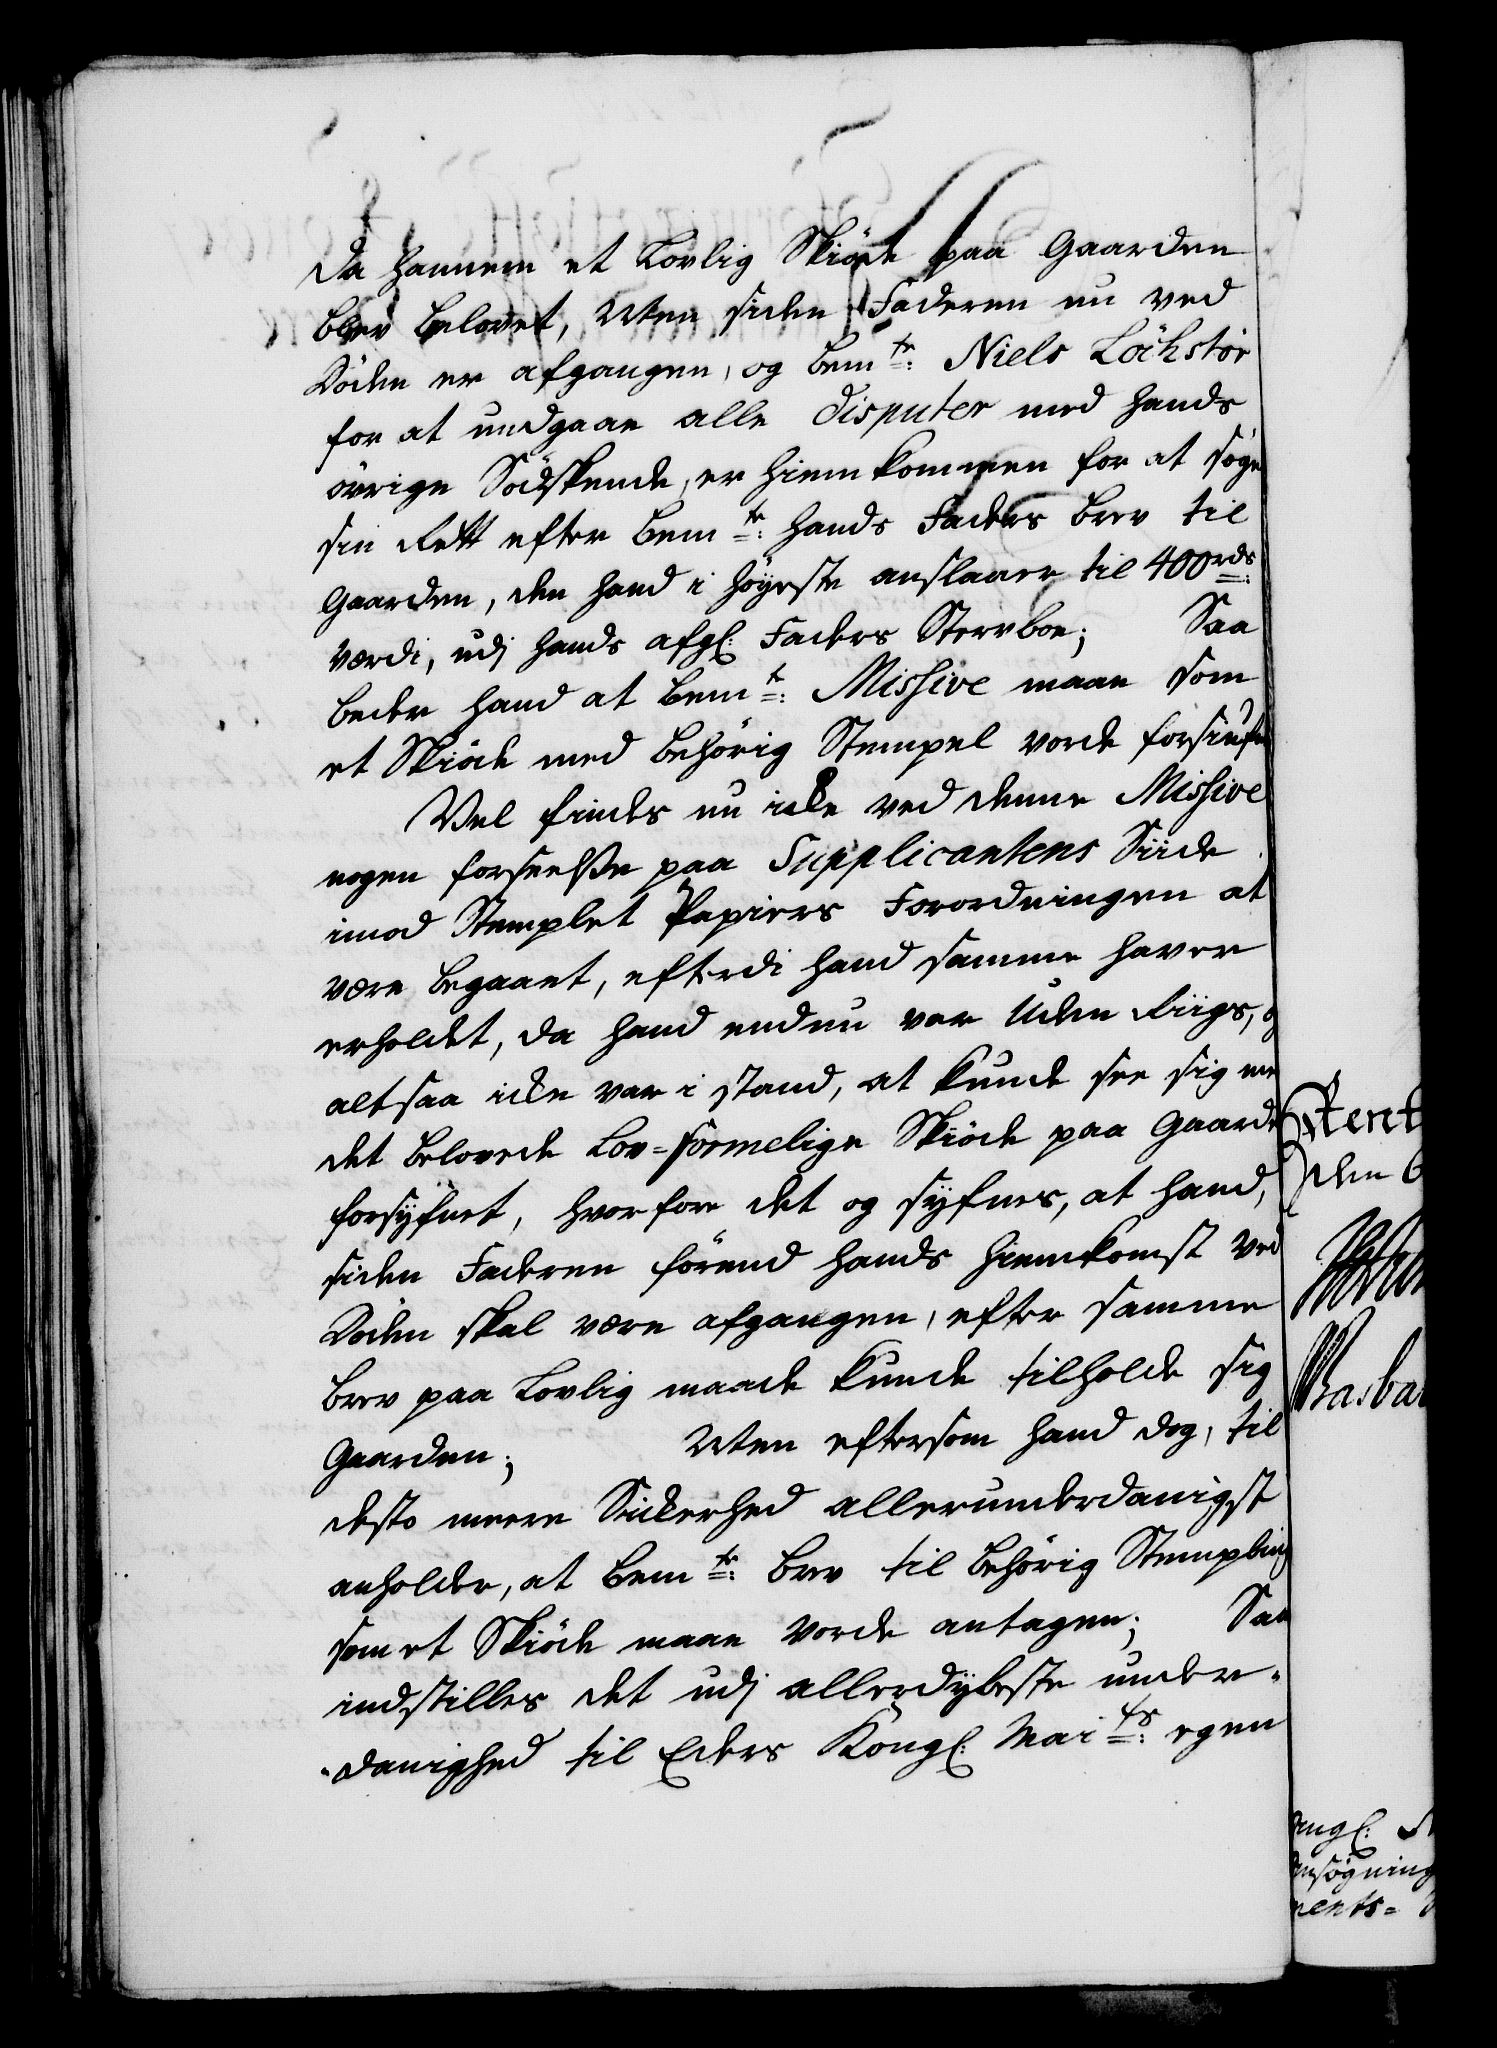 da hannem et Lovlig Skiøde paa Gaarden
blev belovet, Men siden Faderen nu ved
Døden er afgangen, og bemte: Niels Löchstör
for at undgaae alle disputer med hands
övrige Södskende, er hiemkommen for at søge
sin Rett efter bemte: hands Faders brev til
Gaarden, den hand i høyeste anslaaer til 400 rds:
værdi, udj hands afgl: Faders Stervboe; Saa
beder hand at bemte: Missive maae som
et Skiöde med behörig Stempel vorde forsiufnet
Vel findes nu icke ved denne Missive
nogen forseelße paa Supplicantens Siide
imod Stemplet Papiers Forordningen at
være begaaet, efterdi hand samme haver
erholdet, da hand endnu var Uden Riigs, og
altsaa icke var i stand, at kunde see sig med
det belovede Lov-formelige Skiöde paa Gaarden
forsyfnet, hvorfore det og syfnes, at hand,
siden Faderen förend hands hiemkomst ved
Döden skal være afgangen, efter samme
brev paa Lovlig maade kunde tilholde sig
Gaarden; Men eftersom hand dog, til
desto meere Sickerhed allerunderdanigst
anholder, at bemte: brev til behörig Stempling
som et Skiöde maae vorde antagen; Saa
indstilles det udj allerdybeste under-
danighed til Eders Kongl: Maits: egen
Rent
den 6
Basba
ongl:
Ansøgning
ments=